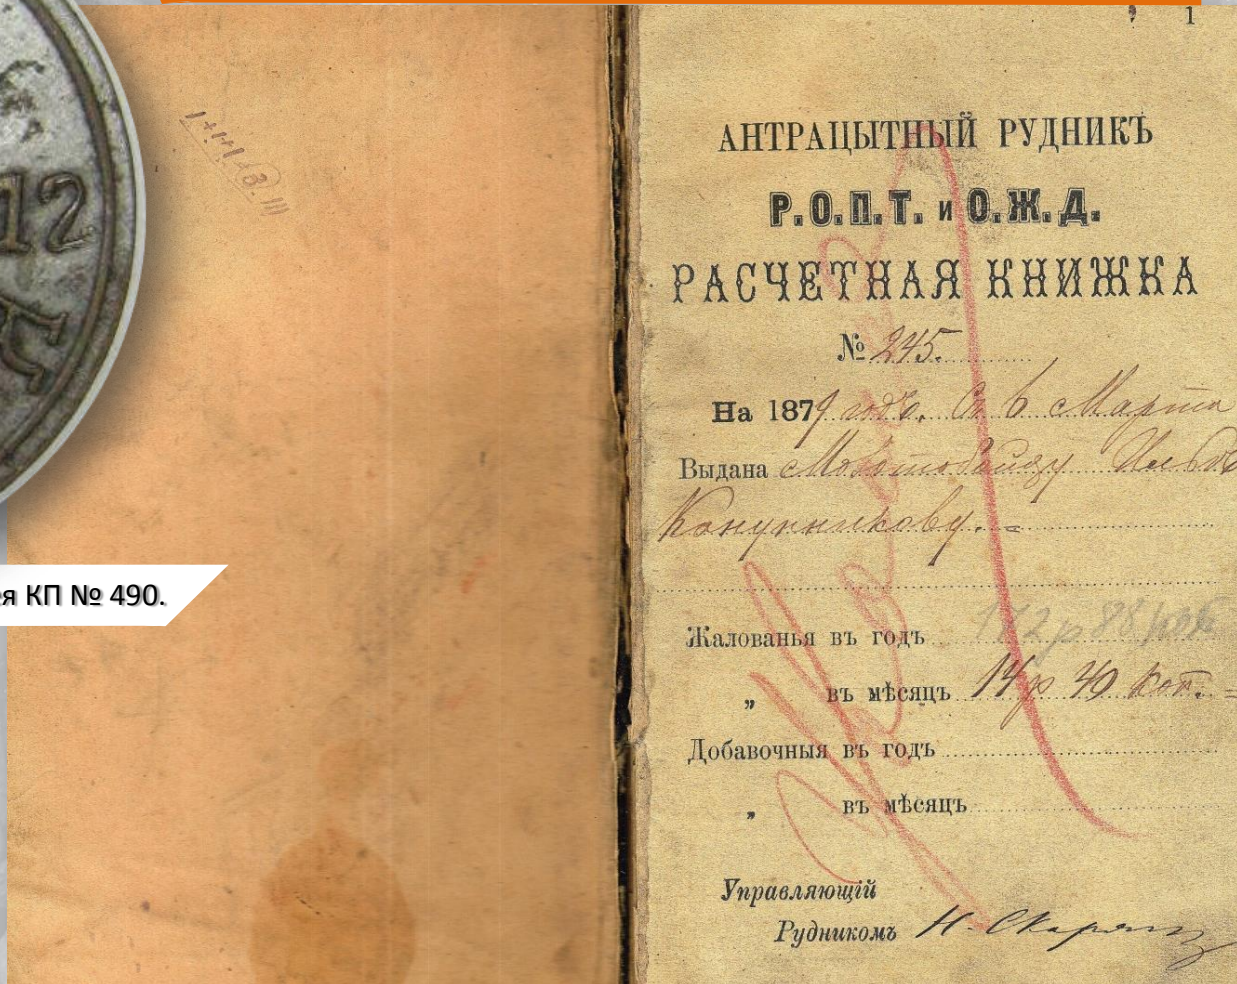 12
я КП № 490.
1
АНТРАЦЫТНЫЙ РУДНИКЪ
Р.О.П.Т. и О.Ж.Д.
РАСЧЕТНАЯ КНИЖКА
№ 245.
На 1879 года. Съ 6 Марта
Выдана
Конункикову. =
Жалованья въ годъ 172 р 8
„ въ мѣсяцъ 14 р 40 коп. =
Добавочныя въ годъ
„ въ мѣсяцъ
Управляющій
Рудникомъ Н.